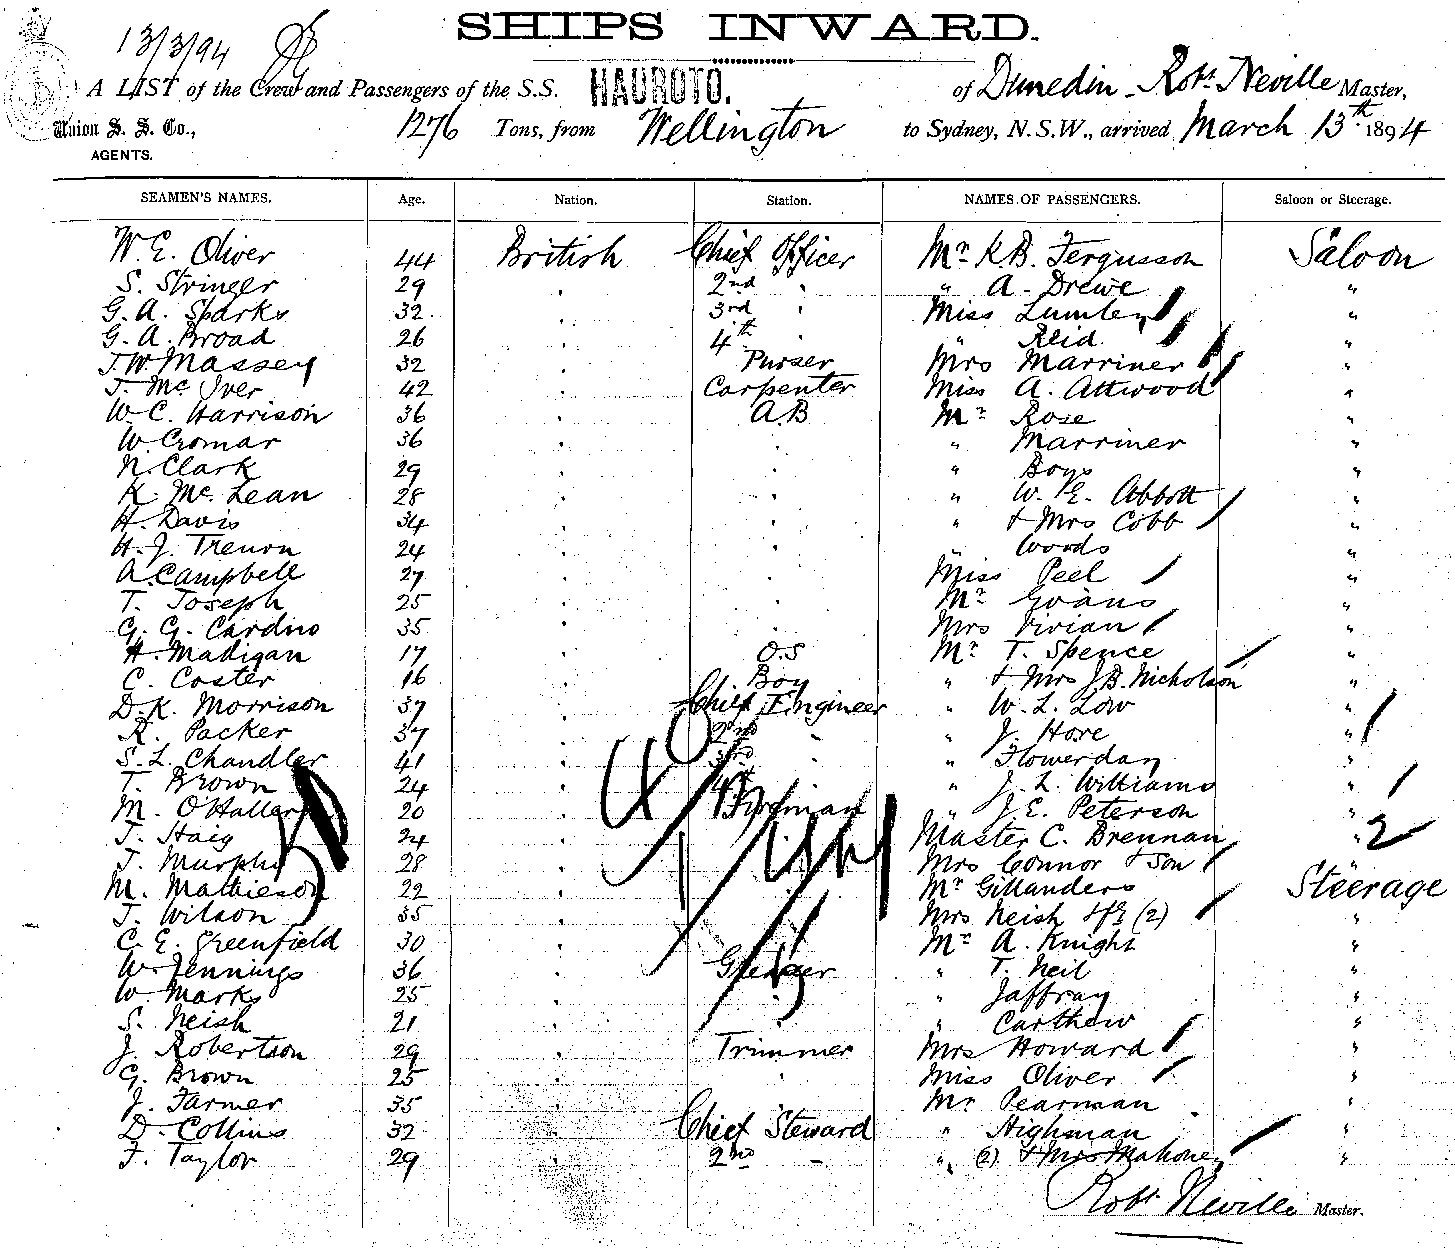 SHIPS INWARD.
13/3/94
A LIST of the Crew and Passengers of the S.S. HAUROTO. of Dunedin - Robt. Neville Master,
Union S. S. Co., 1276 Tons, from Wellington to Sydney, N.S.W., arrived March 13th 1894
AGENTS.
SEAMEN'S NAMES. Age. Nation. Station. NAMES OF PASSENGERS. Saloon or Steerage.
W. E. Oliver 44 British Chief Officer Mr K. B. Fergusson Saloon
S. Stringer 29 " 2nd " " A. Drewe "
G. A. Sparks 32 " 3rd " Miss Lumley "
G. A. Broad 26 " 4th " Reid "
J. W. Massey 32 " Purser Mrs Marriner "
J. McIver 42 " Carpenter Miss A. Attwood "
W. C. Harrison 36 " A.B Mr Rose "
W. Cromar 36 " " " Marriner "
N. Clark 29 " " " Boys "
K. McLean 28 " " " W. E. Abbott "
H. Davis 34 " " " & Mrs Cobb "
H. J. Trenon 24 " " " Woods "
A. Campbell 27 " " Miss Peel "
T. Joseph 25 " " Mr Evans "
G. G. Cardno 35 " " Mrs Vivian "
H. Madigan 17 " O.S Mr T. Spence "
C. Coster 16 " Boy " & Mrs J. B. Nicholson "
D. K. Morrison 37 " Chief Engineer " W. L. Low "
R. Packer 37 " 2nd " " J. Hore "
S. L. Chandler 41 " 3rd " Flowerday "
T. Brown 24 " 4th " J. L. Williams "
M. O'Halleran 20 " Fireman " J. E. Peterson "
J. Haig 24 " Master C. Brennan " 2
J. Murphy 28 " Mrs Connor & Son "
M. Mathieson 22 " Mr Gillanders Steerage
J. Wilson 35 " Mrs Neish & fy (2) "
C. E. Greenfield 30 " Mr A. Knight "
W. Jennings 36 " Greaser " T. Neil "
W. Marks 25 " " Jaffray "
S. Neish 21 " " Carthew "
J. Robertson 29 " Trimmer Mrs Howard "
G. Brown 25 " " Miss Oliver "
J. Farmer 35 " " Mr Pearman "
D. Collins 32 " Chief Steward " Highman "
F. Taylor 29 " 2nd - " (2) & Mrs Mahoney "
Robt Neville Master.